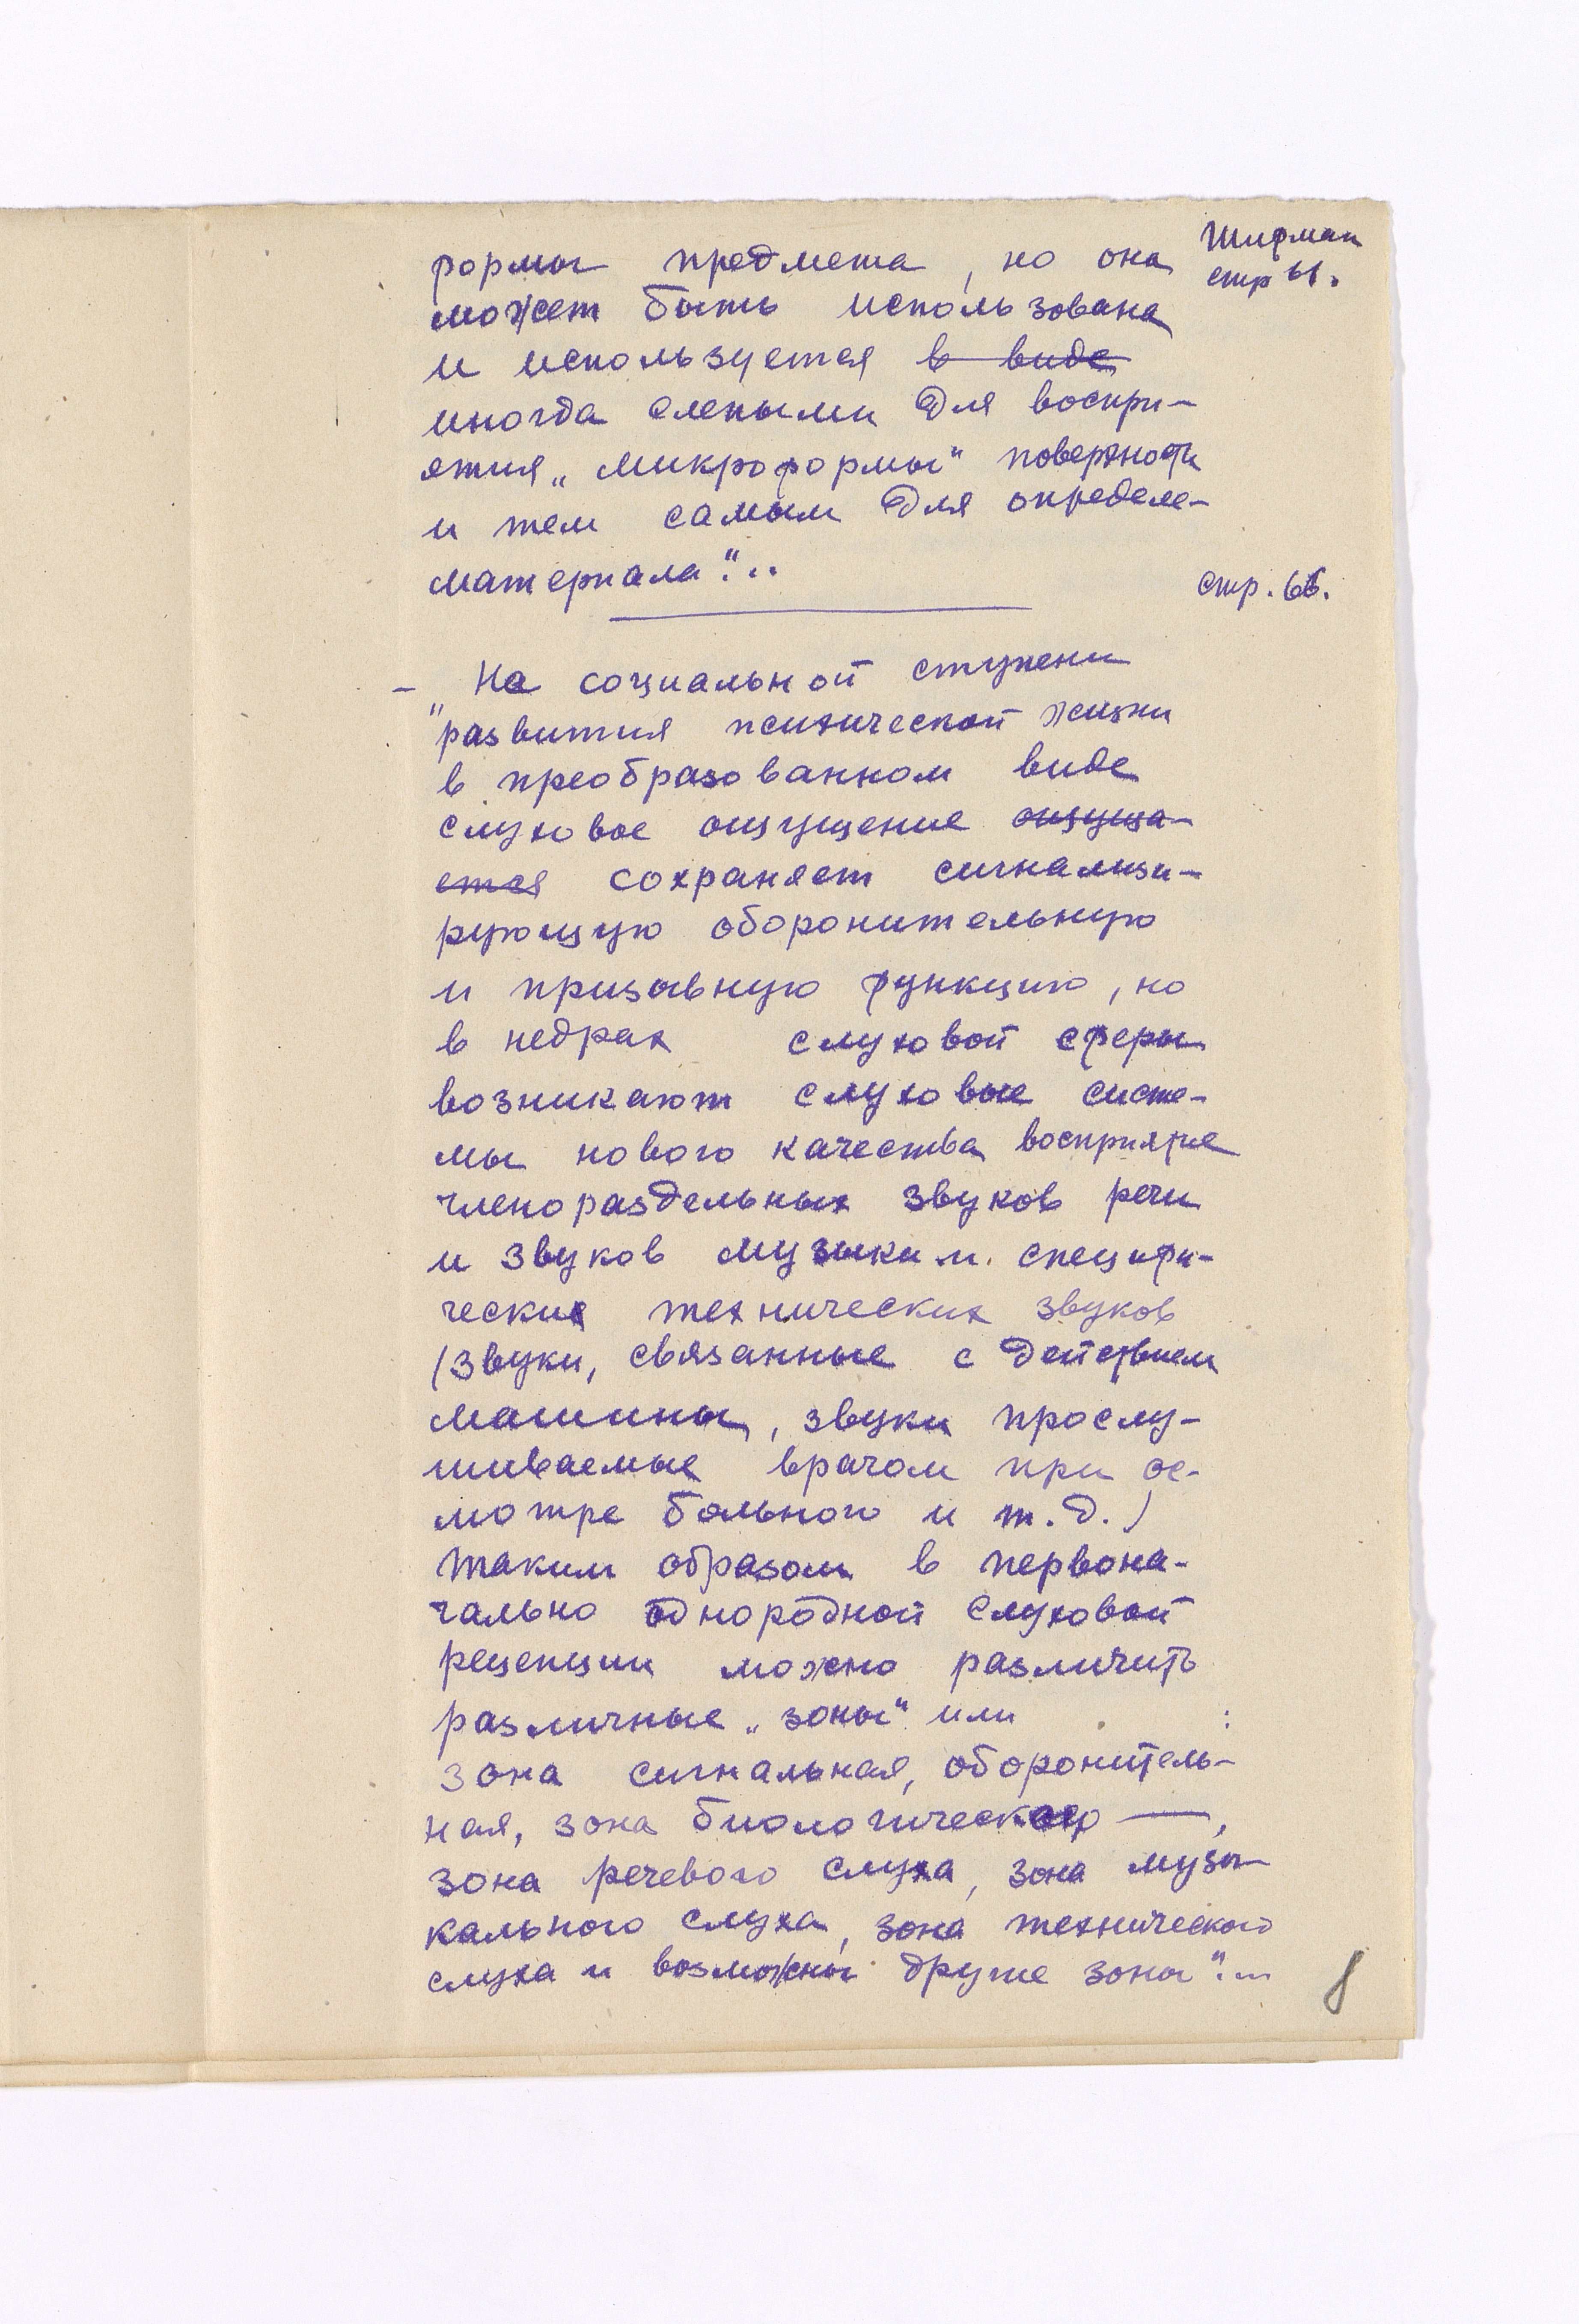 формы предмета, но она
Шифман
стр 61.
может быть использована
и используется в виде
иногда слепыми для воспри-
ятия „микроформы" поверхности
и тем самым для определе-
материала"...
стр. 66.
– „На социальной ступени
развития психической жизни
в преобразованном виде
слуховое ощущение ощуща-
ется сохраняет сигнализи-
рующую оборонительную
и призывную функцию, но
в недрах слуховой сферы
возникают слуховые систе-
мы нового качества восприятие
членораздельных звуков речи
и звуков музыки и специфи-
ческих технических звуков
(звуки, связанные с действием
машины, звуки прослу-
шиваемые врачом при ос-
мотре больного и т.д.)
Таким образом в первона-
чально однородной слуховой
рецепции можно различить
различные „зоны" или :
зона сигнальная, оборонитель-
ная, зона биологического —,
зона речевого слуха, зона музы-
кального слуха, зона технического
слуха и возможны другие зоны"...
8